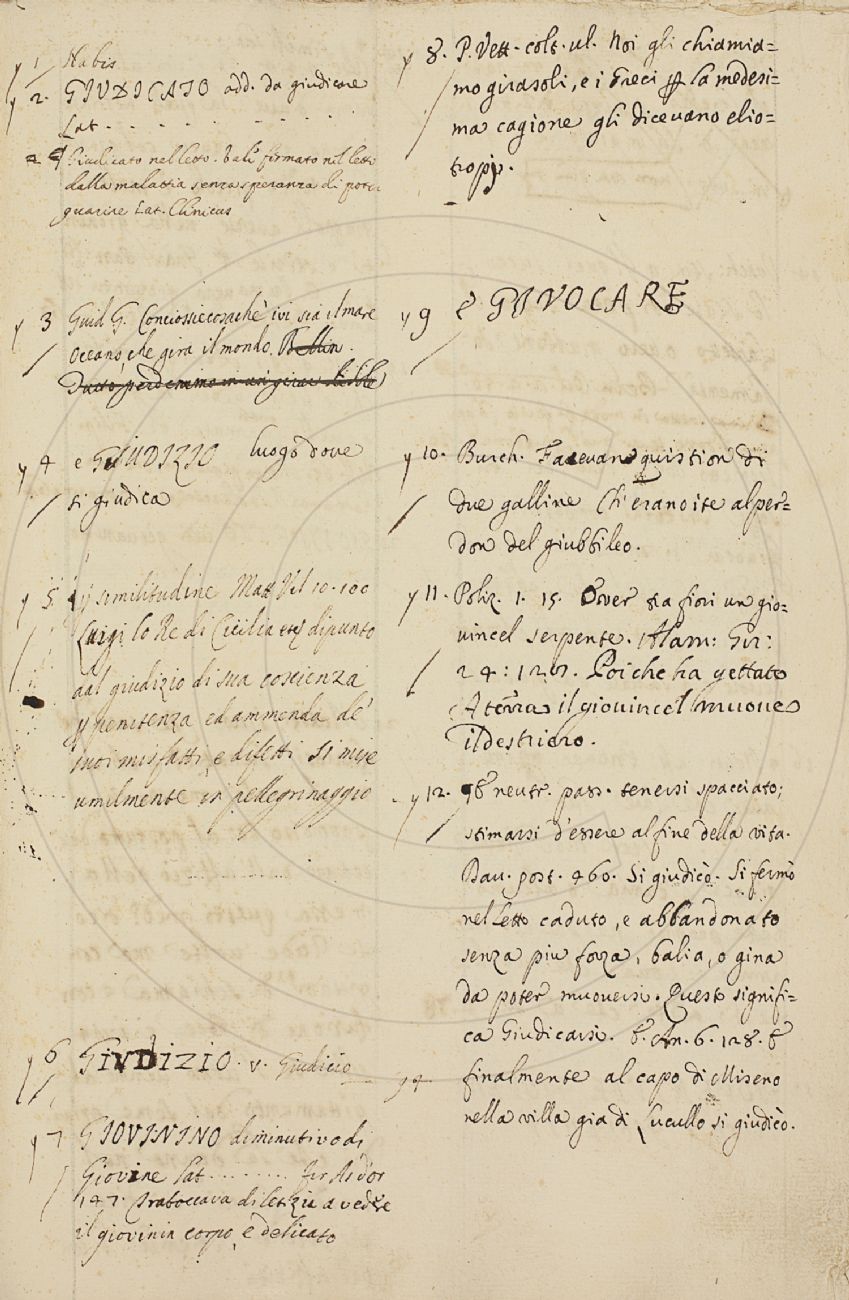 y 1 Nabis
y 2. GIUDICATO add. da giudicare
Lat. . . . . . . . . .
Giudicato nel letto. Vale fermato nel letto
dalla malattia senza speranza di poter
guarire Lat. Clinicus
y 3 Guid G. Conciossiecosachè ivi sia il mare
Oceano, che gira il mondo. Bellin.
y 4 e GIUDIZIO luogo dove
si giudica
y 5. similitudine Matt Vil 10. 100
Luigi lo Re di Cicilia &c dipunto
dal giudizio di sua coscienza
penitenza ed ammenda de'
suoi misfatti, e difetti si mise
umilmente in pellegrinaggio
y 6 GIVDIZIO. v. Giudicio
y 7 GIOVININO diminutivo di
Giovine Lat. . . . . . . . .
147. Traboccava di letizia a vedere
il giovinin corpo, e delicato
y 8. P. Vett. colt. ul. Noi gli chiamia=
mo girasoli, e i Greci la medesi=
ma cagione gli dicevano elio=
tropj.
y 9 e GIVOCARE
y 10. Burch. Facevan quistion di
due galline Ch'erano ite al per=
don del giubbileo.
y 11. Poliz. 1. 15. Over tra fiori un gio=
vincel serpente. Alam: Gir:
24: 127. Poiche ha gettato
A terra il giovincel muove
il destriero.
y 12. neutr. pass. tenersi spacciato;
stimarsi d'essere al fine della vita.
Dav. post. 460. Si giudicò. Si fermò
nel letto caduto, e abbandonato
senza piu forza, balia, o gina
da poter muoversi. Questo signifi=
ca Giudicarsi. E. An. 6. 128. E
finalmente al capo di Miseno
nella villa gia di Lucullo si giudicò.